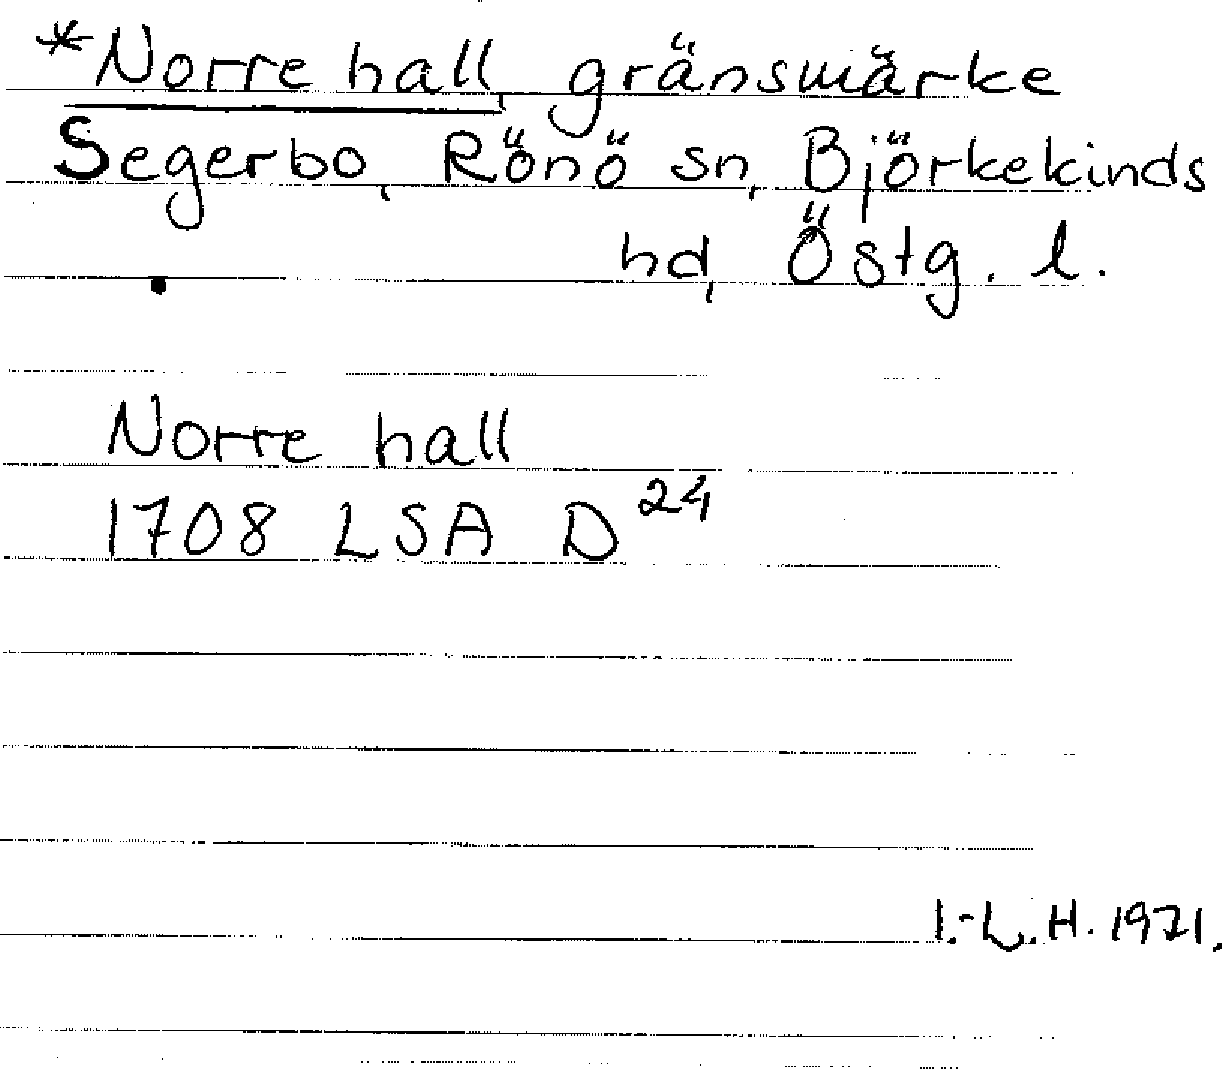 *Norre hall, gränsmärke
Segerbo, Rönö sn, Björkekinds
hd, Östg. l.
Norre hall
1708 LSA D 24
I.-L. H. 1971.